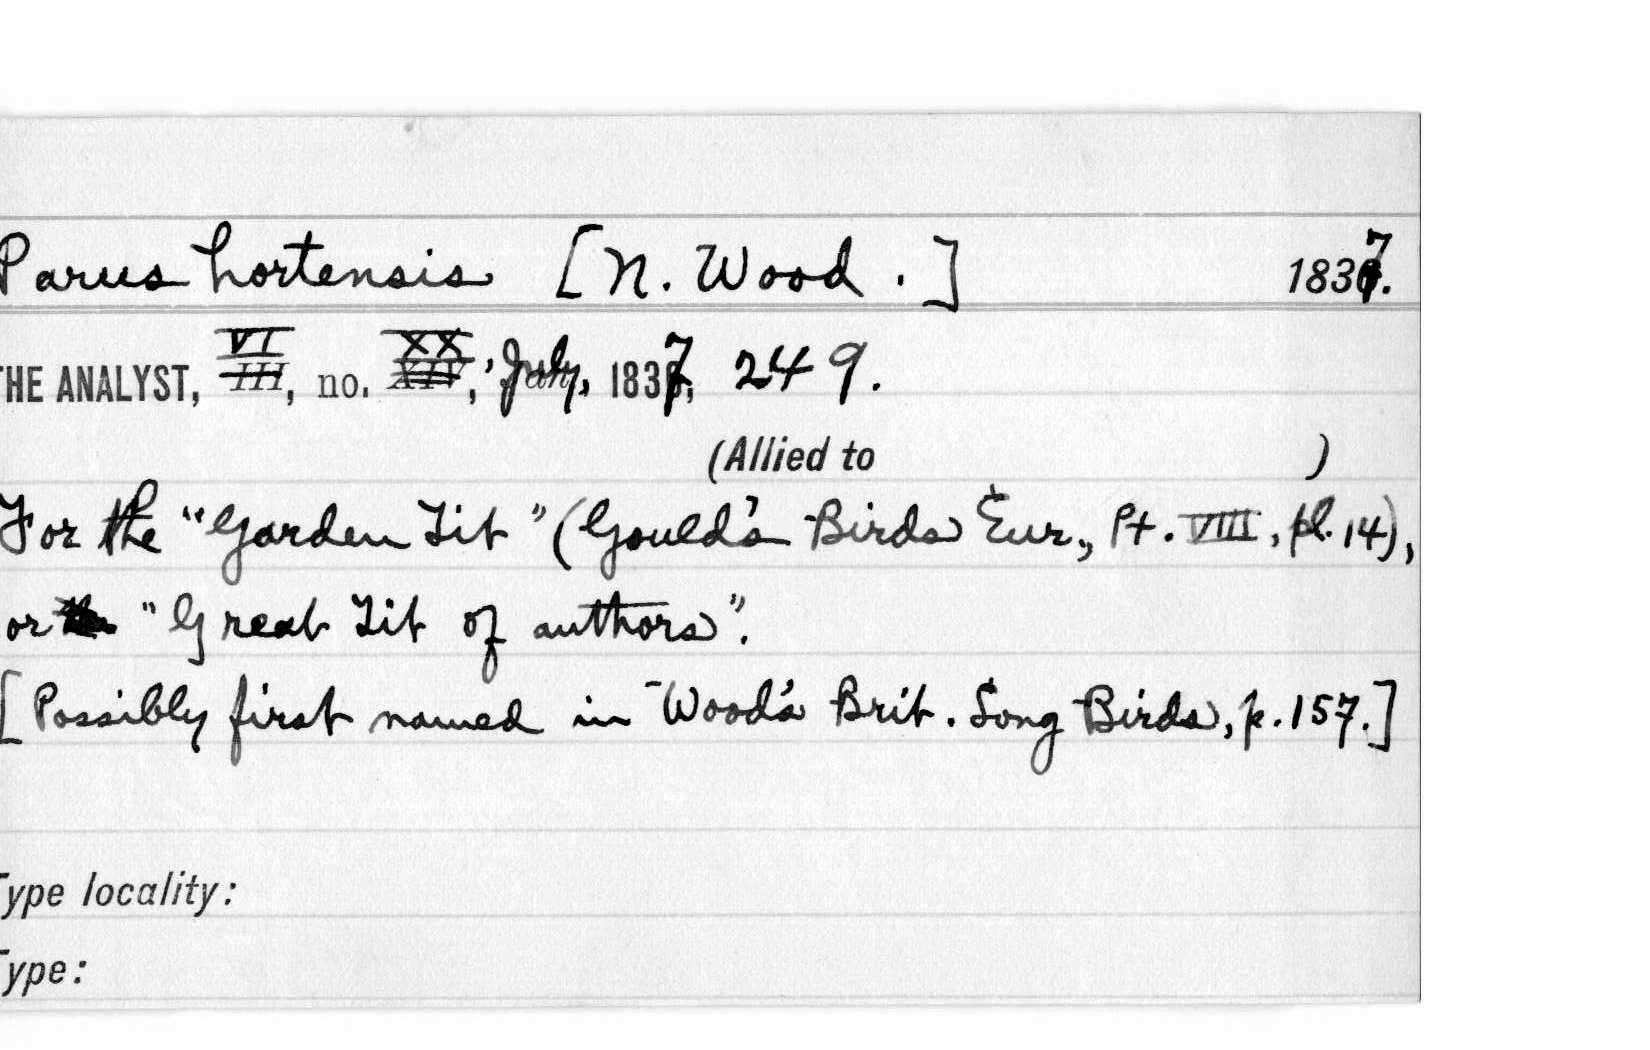 Parus hortensis [N. Wood.] 1837.
THE ANALYST, VI, no. XX, July, 1837, 249.
(Allied to )
For the "Garden Tit" (Gould's Birds Eur., Pt. VIII, pl. 14),
or "Great Tit of authors".
[Possibly first named in Wood's Brit. Song Birds, p. 157.]
Type locality:
Type: